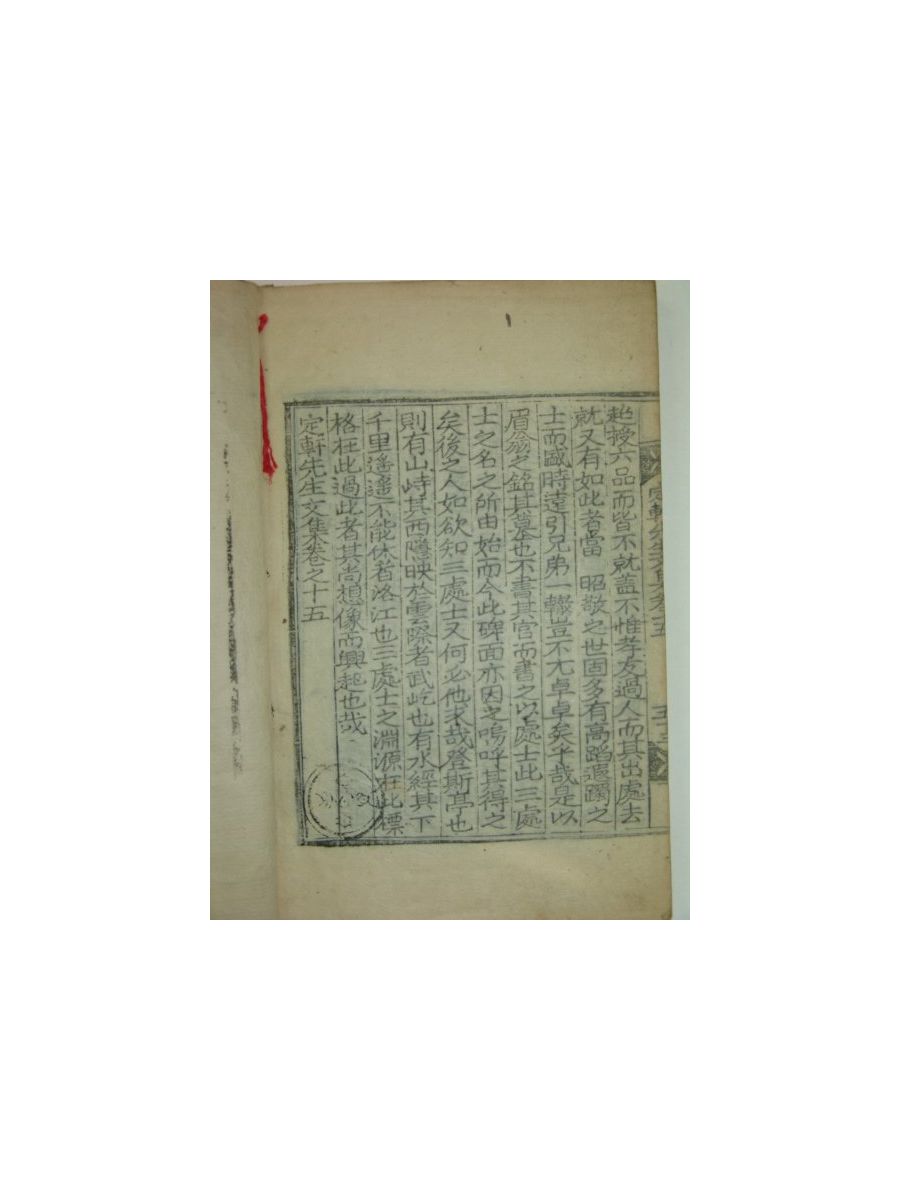 超授六品而皆不就盖不惟孝友過人而其出處去
就又有如此者當 昭敬之世固多有高蹈遐躅之
士而鴎時遠引兄弟一轍豈不尤卓卓矣乎哉是以
眉翁之銘其墓也不書其官而書之以處士此三處
士之名之所由始而今此碑面亦因之嗚呼其得之
矣後之人如欲知三處士又何必他求哉登斯亭也
則有山峙其西隱映於雲際者武屹也有水經其下
千里遙遙不能休者洛江也三處士之淵源在此標
格在此過此者其尚想像而興起也哉
定軒先生文集卷之十五